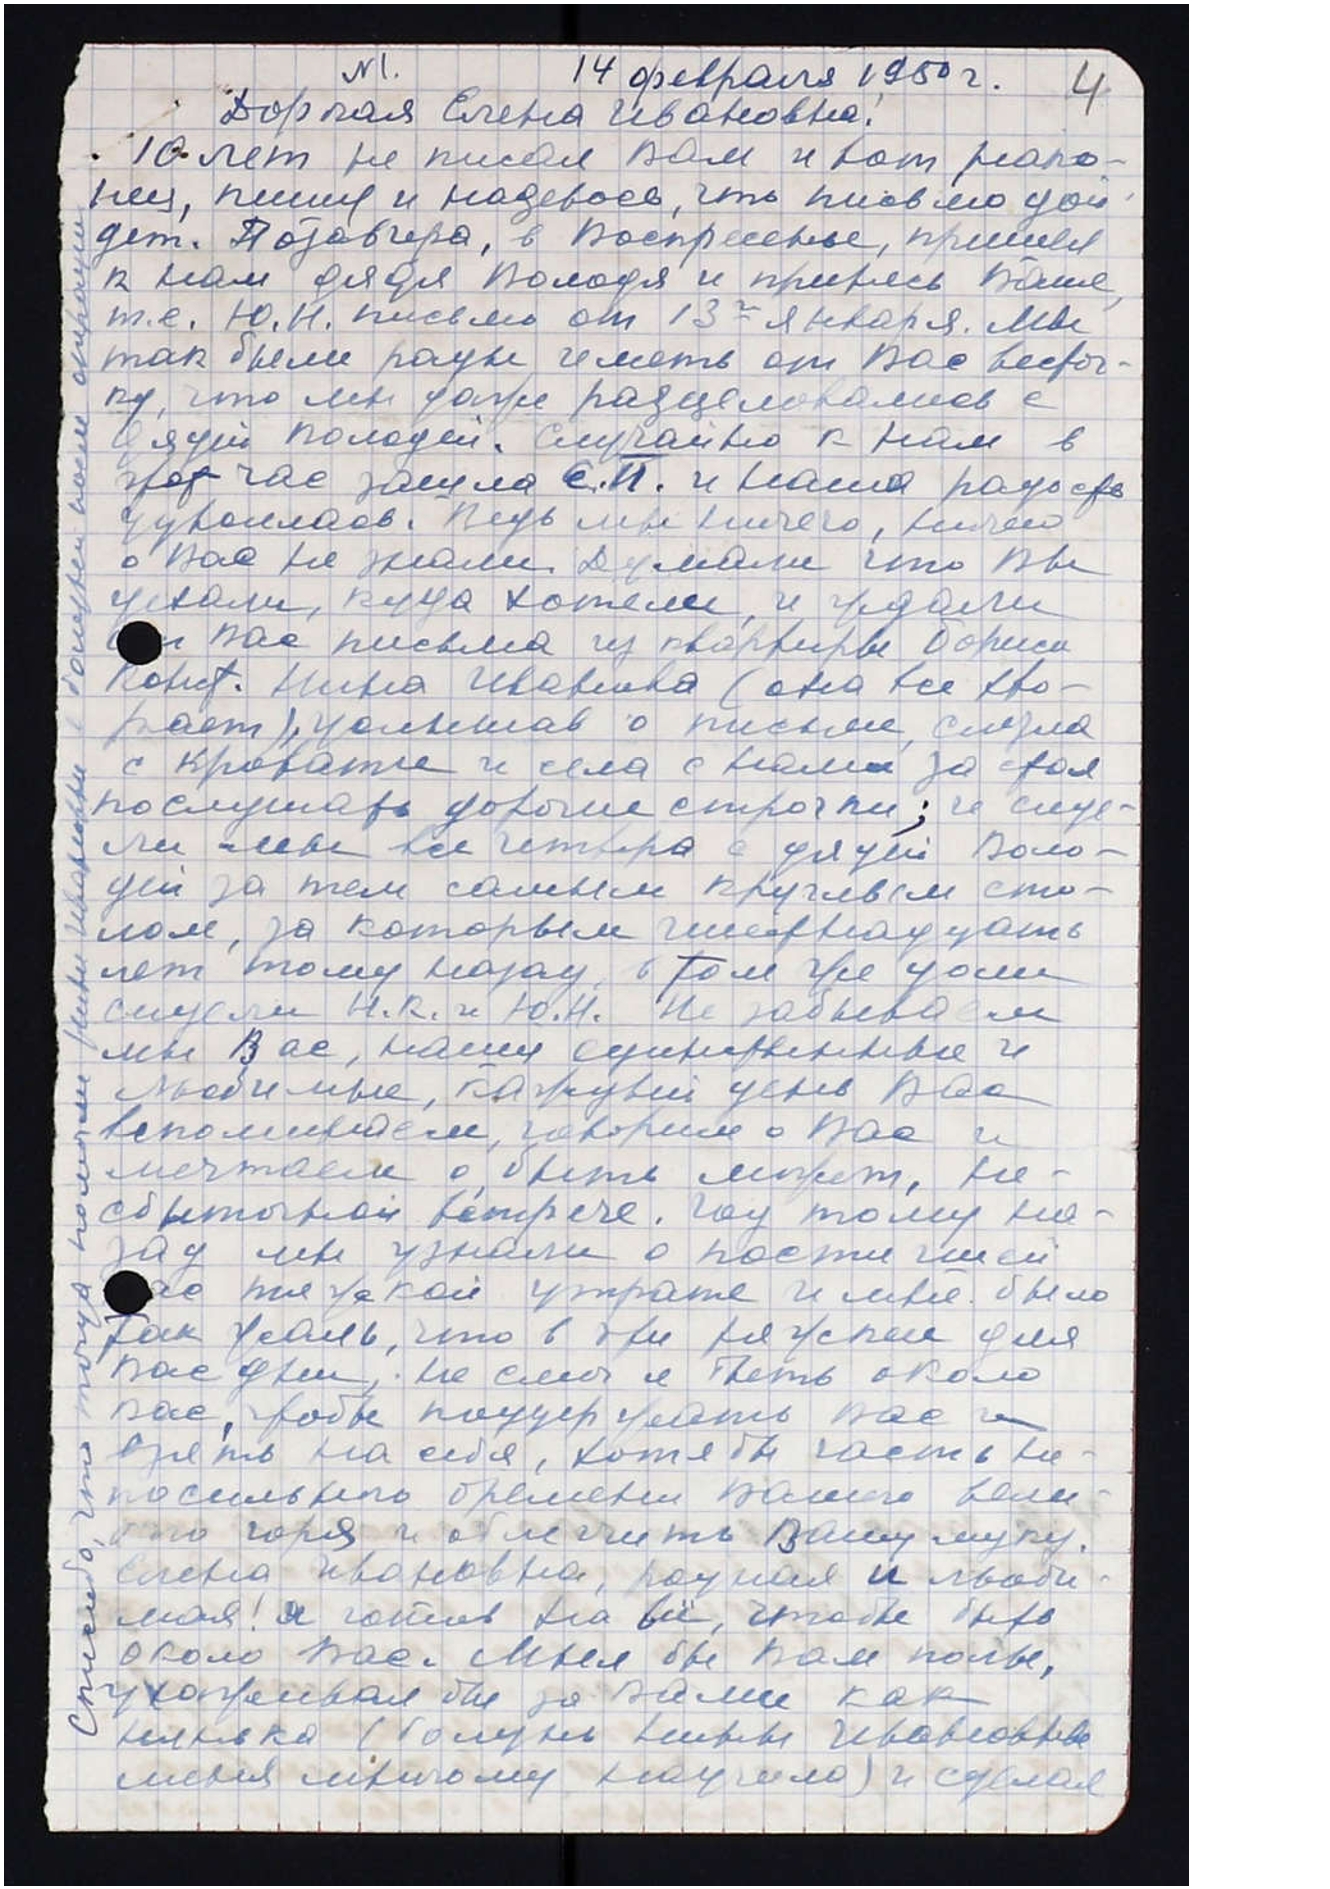 N1. 14 февраля 1950 г. 4
Дорогая Елена Ивановна!
10 лет не писал Вам и вот нако-
нец, пишу и надеюсь, что письмо дой
дет. Позавчера, в Воскресенье, пришел
к нам дядя Володя и принес Ваше,
т.е. Ю.Н. письмо от 13го января. Мы
так были рады иметь от Вас весточ-
ку, что мы даже расцеловались с
дядей Володей. Случайно к нам в
этот час зашла Е.П. и наша радость
удвоилась. Ведь мы ничего, ничего
о Вас не знали. Думали что Вы
уехали, куда хотели, и ждали
от Вас письма из квартиры Бориса
Конст. Нина Ивановна (она все хво-
рает), услышав о письме, слезла
с кровати и села с нами за стол
послушать дорогие строчки; и сиде-
ли мы все четверо с дядей Воло-
дей за тем самым круглым сто-
лом, за которым шестнадцать
лет тому назад, в том же доме
сидели Н.К. и Ю.Н. Не забываем
мы Вас, наши единственные и
любимые, каждый день Вас
вспоминаем, говорим о Вас и
мечтаем о, быть может, не-
сбыточной встрече. Год тому на-
зад мы узнали о постигшей
Вас тяжкой утрате и мне было
так жаль, что в эти тяжкие для
Вас дни, не смог я быть около
Вас, чтобы поддержать Вас и
взять на себя, хотя бы часть не-
посильного бремени Вашего вели-
кого горя и облегчить Вашу муку.
Елена Ивановна, родная и люби-
мая! Я готов на всё, чтобы быть
около Вас. Мыл бы Вам полы,
ухаживал бы за Вами как
нянька (болезнь Нины Ивановны
меня многому научила) и сделал
Спасибо, что тогда помогли Нине Ивановне с